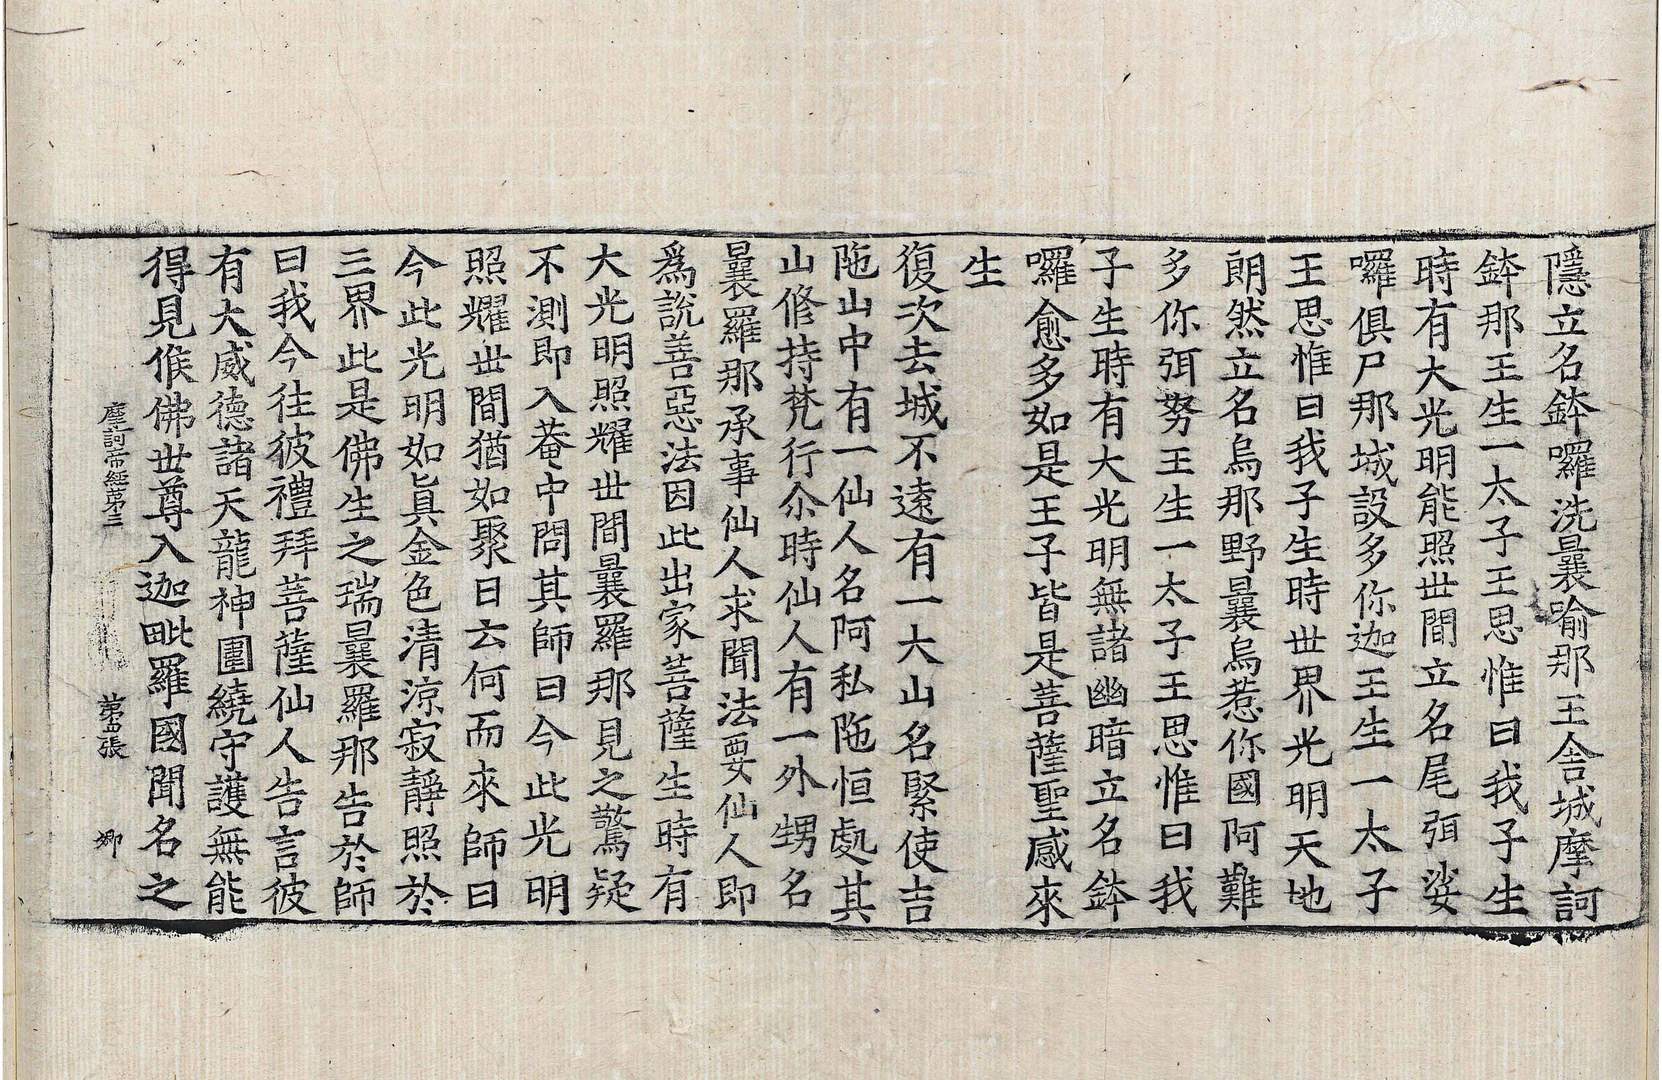 隱立名鉢囉洗曩喻那王舍城摩訶
鉢那王生一太子王思惟曰我子生
時有大光明能照世間立名尾弭娑
囉俱尸那城設多你迦王生一太子
王思惟曰我子生時世界光明天地
朗然立名烏那野曩烏惹你國阿難
多你弭努王生一太子王思惟曰我
子生時有大光明無諸幽暗立名鉢
囉愈多如是王子皆是菩薩聖感來
生
復次去城不遠有一大山名緊使吉
陁山中有一仙人名阿私陁恒處其
山修持梵行尒時仙人有一外甥名
曩羅那承事仙人求聞法要仙人即
爲說善惡法因此出家菩薩生時有
大光明照耀世間曩羅那見之驚疑
不測即入菴中問其師曰今此光明
照耀世間猶如聚日云何而來師曰
今此光明如眞金色清涼寂靜照於
三界此是佛生之瑞曩羅那告於師
曰我今往彼禮拜菩薩仙人告言彼
有大威德諸天龍神圍繞守護無能
得見候佛世尊入迦毗羅國聞名之
摩訶帝經第三 第五張 卿